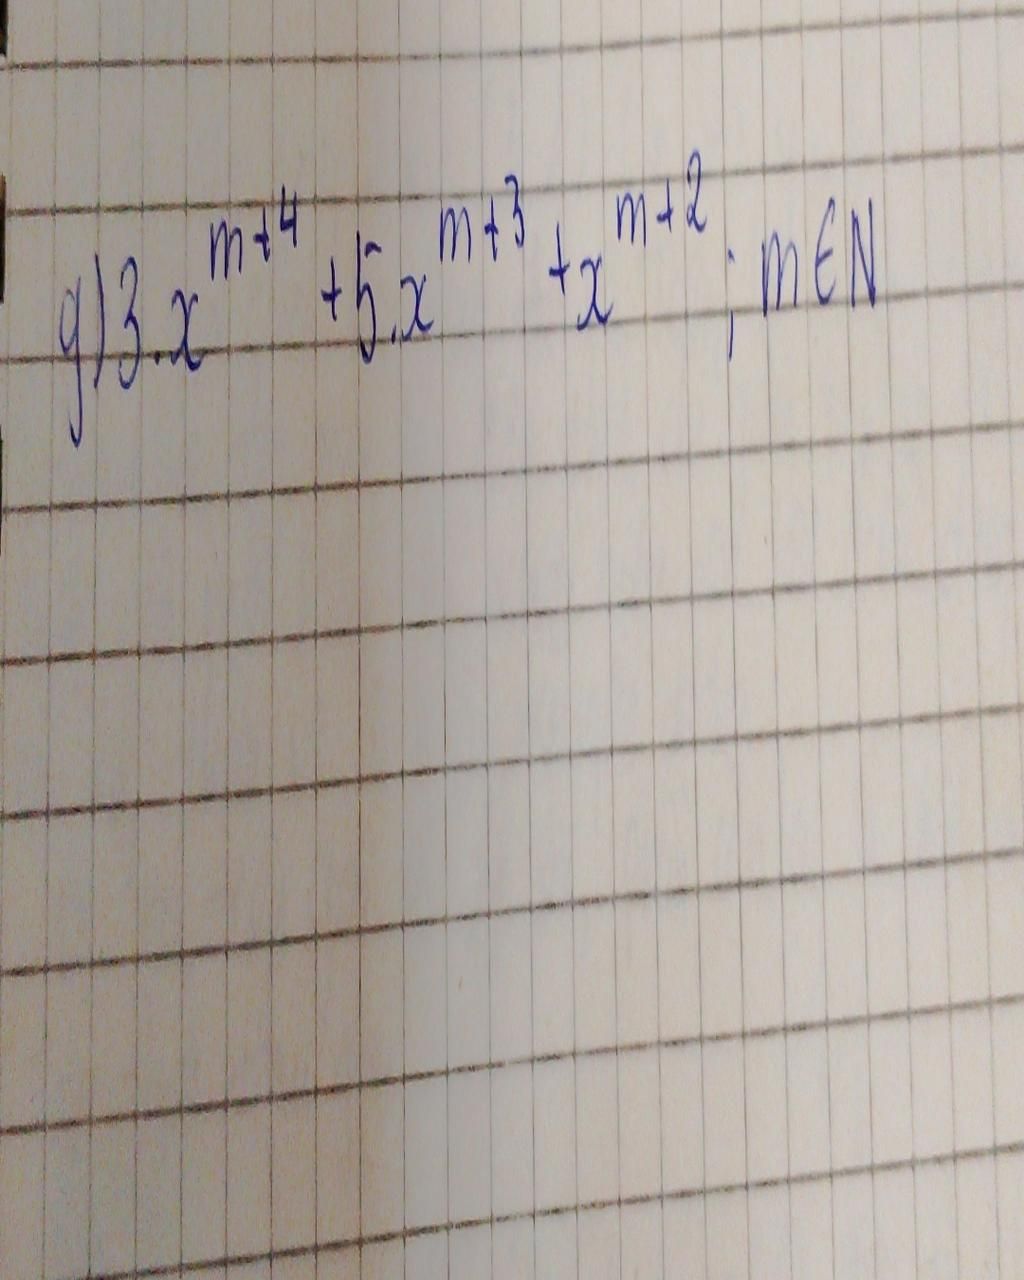 g) 3.x^{m+4} + 5.x^{m+3} + x^{m+2} ; m∈N